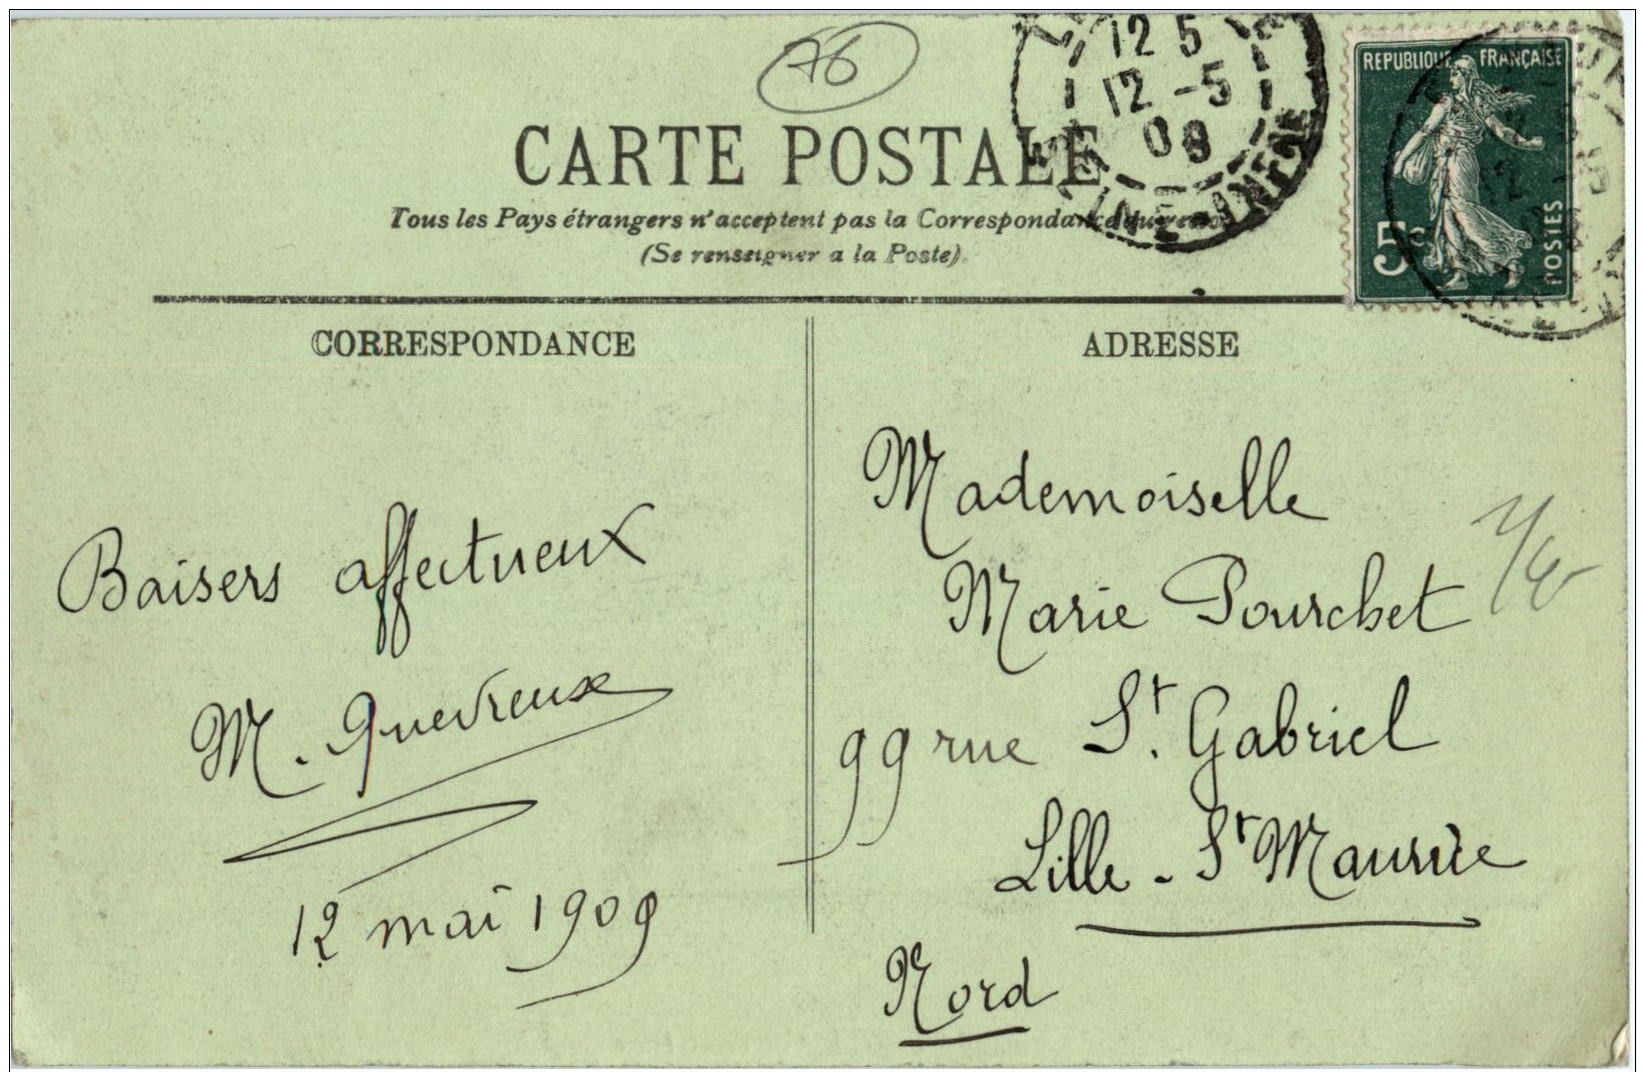 76
CARTE POSTALE
Tous les Pays étrangers n'acceptent pas la Correspondance au verso
(Se renseigner a la Poste).
12 5
12 -5
09
REPUBLIQUE FRANÇAISE
5c
POSTES
CORRESPONDANCE
Baisers affectueux
M. Quevreux
12 mai 1909
ADRESSE
Mademoiselle
Marie Pourchet
99 rue St. Gabriel
Lille - St Maurice
Nord